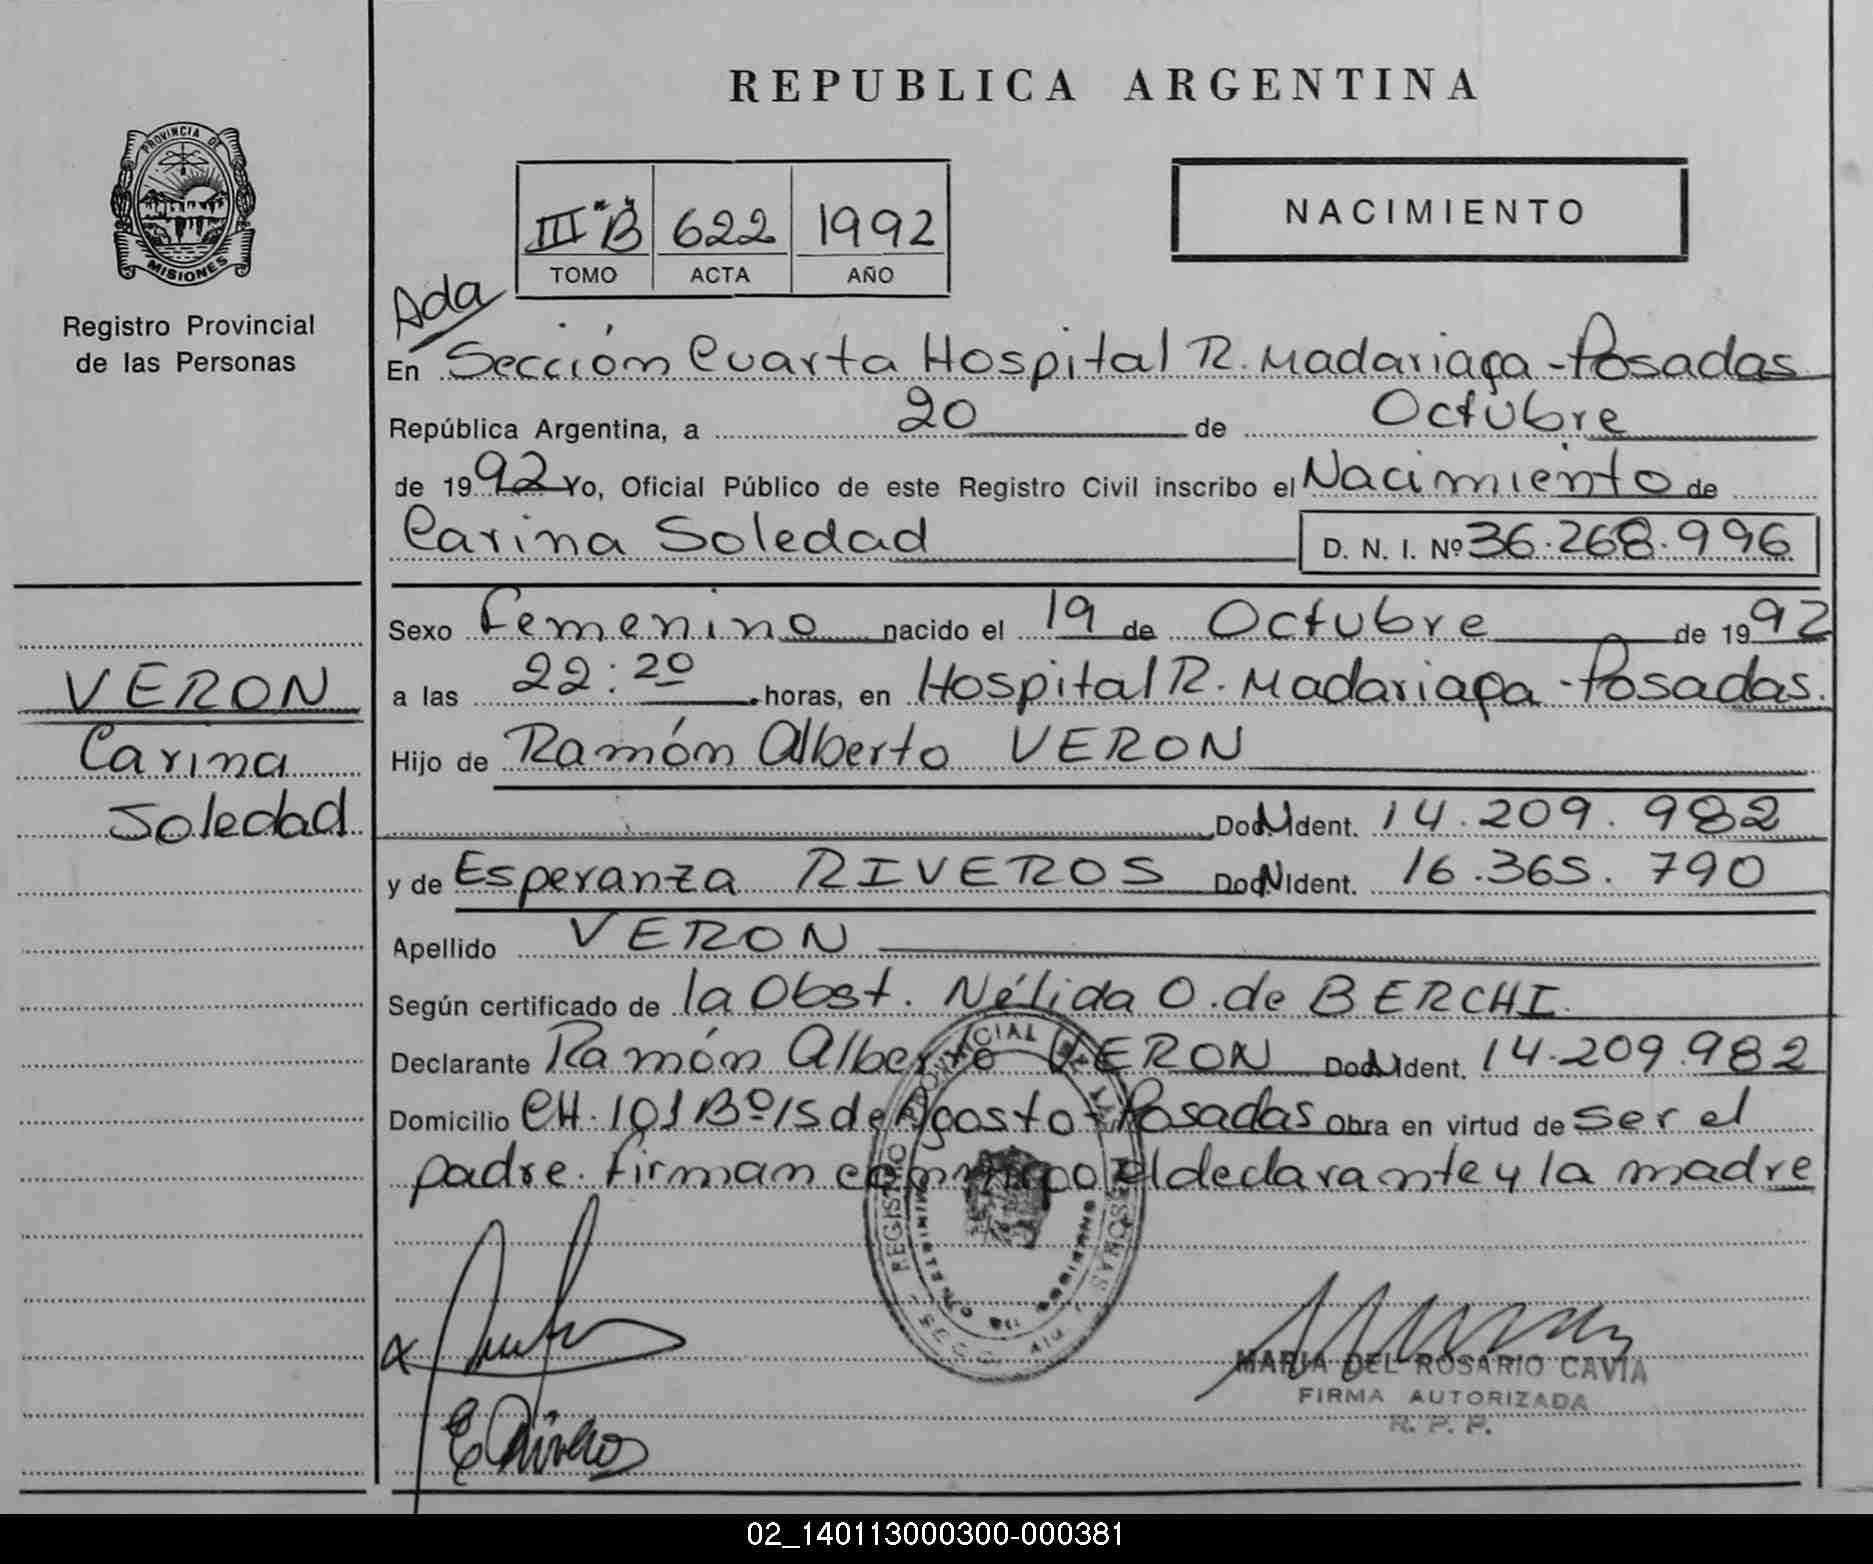 REPUBLICA ARGENTINA
PROVINCIA DE
MISIONES
Registro Provincial
de las Personas
III "B" 622 1992
TOMO ACTA AÑO
NACIMIENTO
Ada
En Sección Cuarta Hospital R. Madariaga - Posadas
República Argentina, a 20 de Octubre
de 1992 Yo, Oficial Público de este Registro Civil inscribo el Nacimiento de
Carina Soledad D. N. I. Nº 36.268.996
Sexo Femenino nacido el 19 de Octubre de 1992
a las 22:20 horas, en Hospital R. Madariaga - Posadas.
Hijo de Ramón Alberto VERON
Doc. Ident. 14.209.982
y de Esperanza RIVEROS Doc. Ident. 16.365.790
Apellido VERON
Según certificado de la Obst. Nélida O. de BERCHI.
Declarante Ramón Alberto VERON Doc. Ident. 14.209.982
Domicilio CH. 101 Bº 15 de Agosto - Posadas Obra en virtud de ser el
padre. Firman conmigo el declarante y la madre
VERON
Carina
Soledad
REGISTRO PROVINCIAL DE LAS PERSONAS
MINISTERIO DE GOBIERNO
E Riveros
MARIA DEL ROSARIO CAVIA
FIRMA AUTORIZADA
R. P. P.
02_140113000300-000381